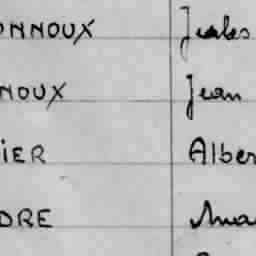 ONNOUX Jules
NOUX Jean
IER Alber
DRE